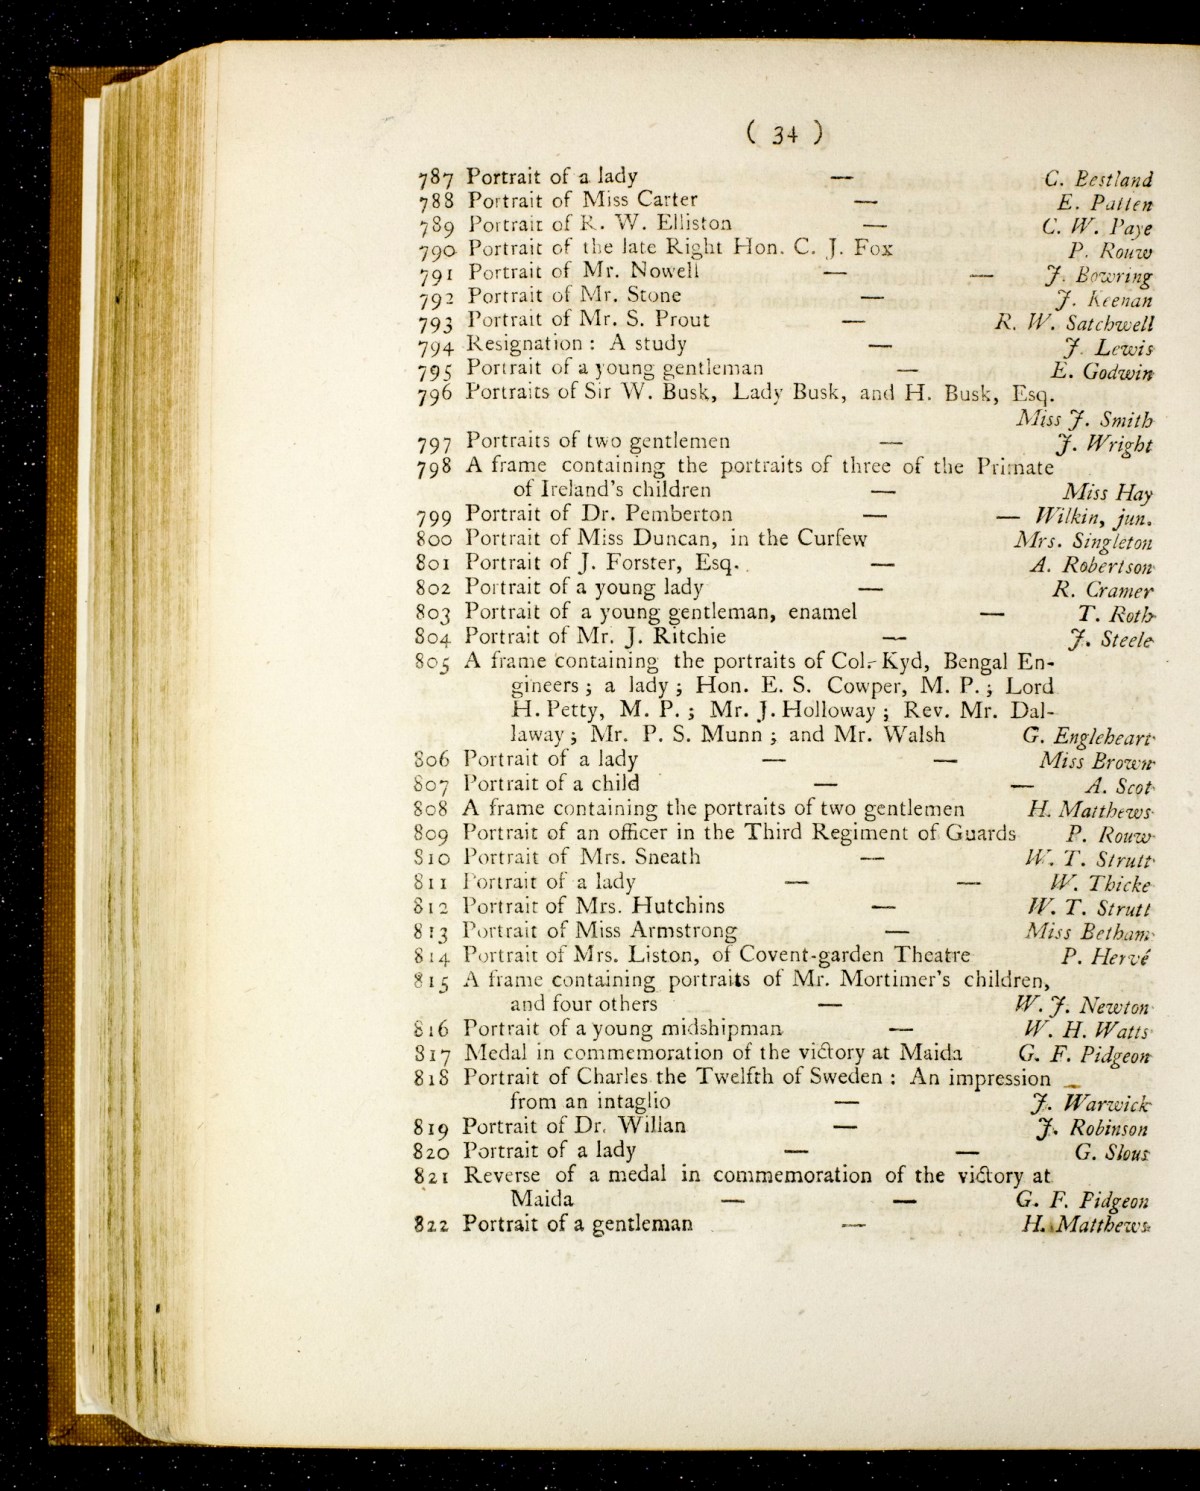 ( 34 )
787 Portrait of a lady — C. Bestland
788 Portrait of Miss Carter — E. Patten
789 Portrait of R. W. Elliston — C. W. Paye
790 Portrait of the late Right Hon. C. J. Fox P. Rouw
791 Portrait of Mr. Nowell — — J. Bowring
792 Portrait of Mr. Stone — J. Keenan
793 Portrait of Mr. S. Prout — R. W. Satchwell
794 Resignation : A study — J. Lewis
795 Portrait of a young gentleman — E. Godwin
796 Portraits of Sir W. Busk, Lady Busk, and H. Busk, Esq.
Miss J. Smith
797 Portraits of two gentlemen — J. Wright
798 A frame containing the portraits of three of the Primate
of Ireland's children — Miss Hay
799 Portrait of Dr. Pemberton — — Wilkin, jun.
800 Portrait of Miss Duncan, in the Curfew Mrs. Singleton
801 Portrait of J. Forster, Esq. — A. Robertson
802 Portrait of a young lady — R. Cramer
803 Portrait of a young gentleman, enamel — T. Roth
804 Portrait of Mr. J. Ritchie — J. Steele
805 A frame containing the portraits of Col. Kyd, Bengal En-
gineers ; a lady ; Hon. E. S. Cowper, M. P. ; Lord
H. Petty, M. P. ; Mr. J. Holloway ; Rev. Mr. Dal-
laway ; Mr. P. S. Munn ; and Mr. Walsh G. Engleheart
806 Portrait of a lady — — Miss Brown
807 Portrait of a child — — A. Scot
808 A frame containing the portraits of two gentlemen H. Matthews
809 Portrait of an officer in the Third Regiment of Guards P. Rouw
810 Portrait of Mrs. Sneath — W. T. Strutt
811 Portrait of a lady — — W. Thicke
812 Portrait of Mrs. Hutchins — W. T. Strutt
813 Portrait of Miss Armstrong — Miss Betham
814 Portrait of Mrs. Liston, of Covent-garden Theatre P. Hervé
815 A frame containing portraits of Mr. Mortimer's children,
and four others — W. J. Newton
816 Portrait of a young midshipman — W. H. Watts
817 Medal in commemoration of the victory at Maida G. F. Pidgeon
818 Portrait of Charles the Twelfth of Sweden : An impression
from an intaglio — J. Warwick
819 Portrait of Dr. Willan — J. Robinson
820 Portrait of a lady — — G. Slous
821 Reverse of a medal in commemoration of the victory at
Maida — — G. F. Pidgeon
822 Portrait of a gentleman — H. Matthews